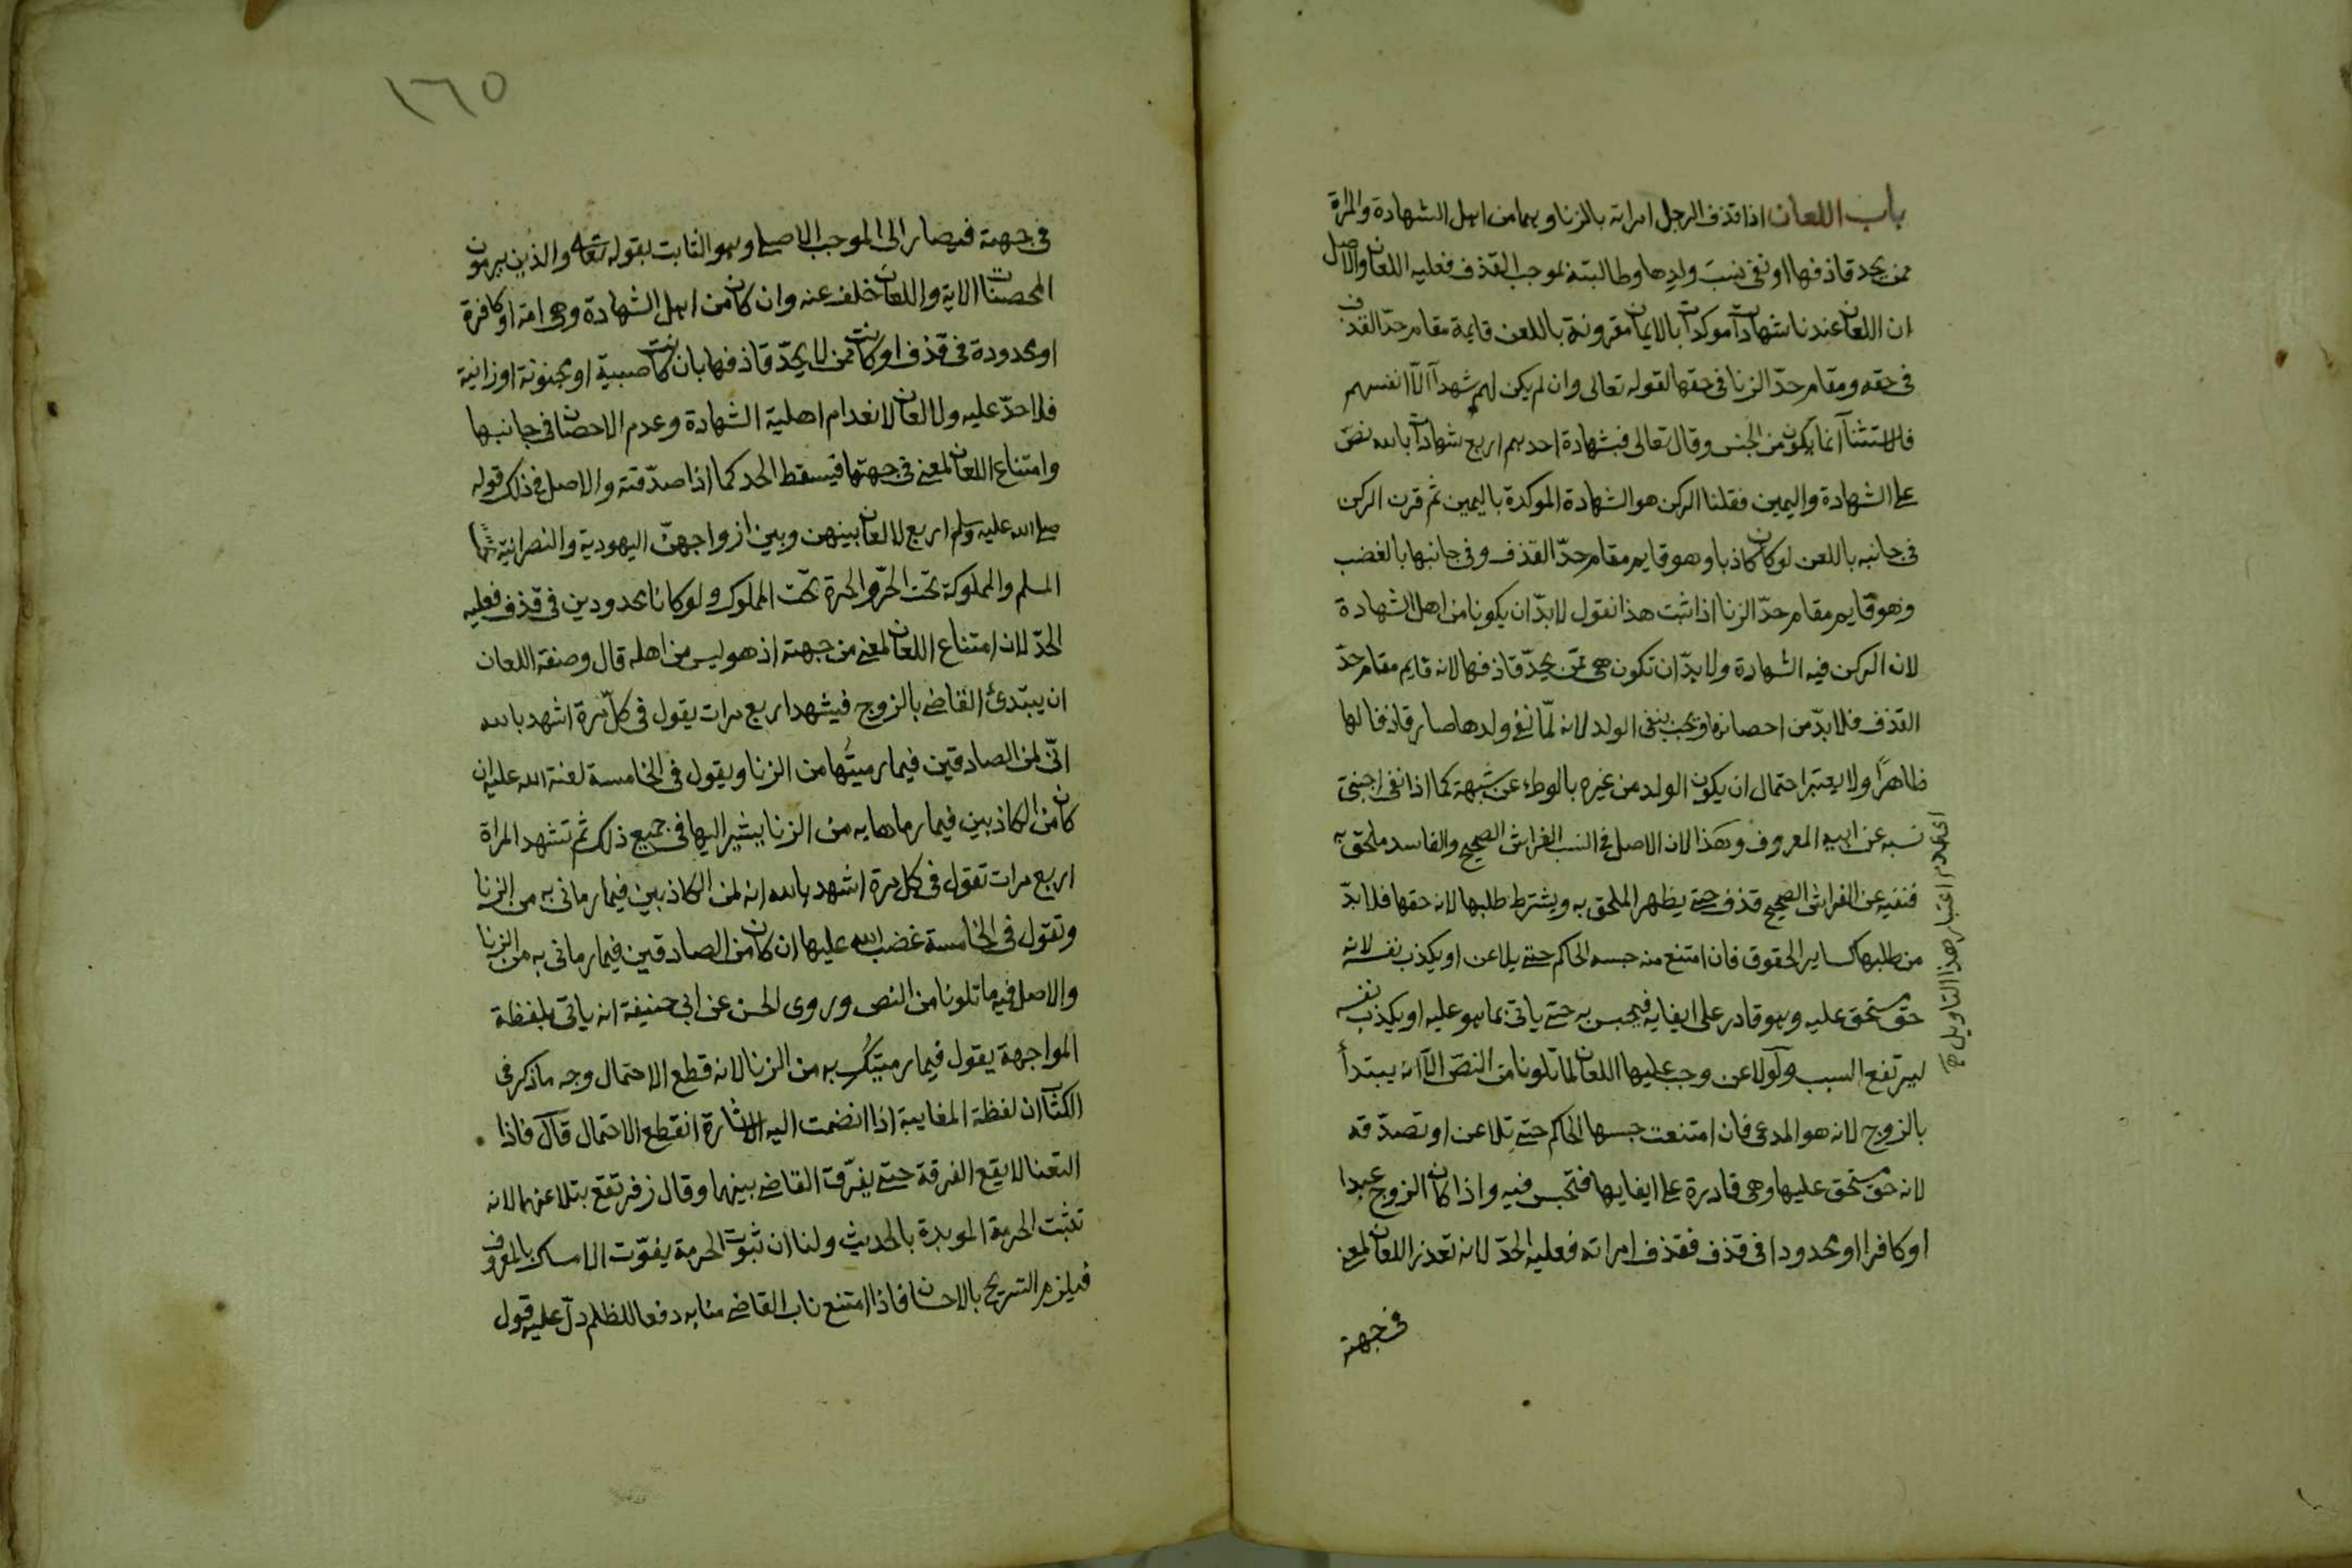 باب اللعان اذا قذف الرجل امراته بالزنا وهما من اهل الشهادة والمراة
ممن يحد قاذفها او نفى نسب ولدها وطالبته بموجب القذف فعليه اللعان والاصل
ان اللعان عندنا شهادات موكدات بالايمان مقرونة باللعن قايمة مقام حدّ القذف
فى حقه ومقام حدّ الزنا فى حقها لقوله تعالى وان لم يكن لهم شهدآ الّا انفسهم
فالاستثنآ انما يكون من الجنس وقال تعالى فشهادة احدهم اربع شهادات بالله نصّ
على الشهادة واليمين فقلنا الركن هو الشهادة الموكدة باليمين ثم قرن الركن
فى جانبه باللعن لو كان كاذبا وهو قايم مقام حدّ القذف وفى جانبها بالغضب
وهو قايم مقام حدّ الزنا اذا ثبت هذا نقول لابدّ ان يكونا من اهل الشهادة
لان الركن فيه الشهادة ولا بدّ ان تكون هى ممّن يحدّ قاذفها لانه قايم مقام حدّ
القذف فلا بدّ من احصانها ويجب بنفى الولد لانه لمّا نفى ولدها صار قاذفا لها
ظاهرًا ولا يعتبر احتمال ان يكون الولد من غيره بالوطء عن شبهة كما اذا نفى اجنبى
نسبه عن ابيه المعروف وهذا لان الاصل فى النسب الفراش الصحيح والفاسد ملحق به
فنفيه عن الفراش الصحيح قذف حتى يظهر الملحق به ويشترط طلبها لانه حقها فلا بدّ
من طلبها كساير الحقوق فان امتنع منه حبسه الحاكم حتى يلاعن او يكذب نفسه لانه
حق مستحق عليه وهو قادر على ايفايه فيحبس به حتى ياتى بما هو عليه او يكذب نفسه
ليرتفع السبب ولو لاعن وجب عليها اللعان لما تلونا من النصّ الّا انه يبتدأ
بالزوج لانه هو المدعى فان امتنعت حبسها الحاكم حتى تلاعن او تصدّقه
لانه حق مستحق عليها وهى قادرة على ايفايها فتحبس فيه واذا كان الزوج عبدا
او كافرا او محدودا فى قذف فقذف امراته فعليه الحدّ لانه تعذر اللعان لمعنى
فى جهته
اى عدم اعتبار هذا التاويل
١٦٥
فى جهته فيصار الى الموجب الاصلى وهو الثابت بقوله تعالى والذين يرمون
المحصنات الاية واللعان خلف عنه وان كان من اهل الشهادة وهى امة او كافرة
او محدودة فى قذف او كانت ممن لا يحدّ قاذفها بان كانت صبيية او مجنونة او زانية
فلا حدّ عليه ولا لعان لانعدام اهلية الشهادة وعدم الاحصان فى جانبها
وامتناع اللعان لمعنى فى جهتها فيسقط الحد كما اذا صدّقته والاصل فى ذلك قوله
صلى الله عليه وسلم اربع لا لعان بينهن وبين ازواجهنّ اليهودية والنصرانية تحت
المسلم والمملوكة تحت الحرّ والحرة تحت المملوك ولو كانا محدودين فى قذف فعليه
الحدّ لان امتناع اللعان لمعنى من جهته اذ هو ليس من اهله قال وصفة اللعان
ان يبتدئ القاضى بالزوج فيشهد اربع مرات يقول فى كلّ مرة اشهد بالله
انّى لمن الصادقين فيما رميتُها من الزنا ويقول فى الخامسة لعنة الله عليه ان
كان من الكاذبين فيما رماها به من الزنا يشير اليها فى جميع ذلك ثم تشهد المراة
اربع مرات تقول فى كل مرة اشهد بالله انه لمن الكاذبين فيما رمانى به من الزنا
وتقول فى الخامسة غضب الله عليها ان كان من الصادقين فيما رمانى به من الزنا
والاصل فيه ما تلونا من النص وروى الحسن عن ابى حنيفة انه ياتى بلفظة
المواجهة يقول فيما رميتكِ به من الزنا لانه قطع الاحتمال وجه ما ذكر فى
الكتاب ان لفظة المغايبة اذا انضمت اليه الاشارة انقطع الاحتمال قال فاذا
التعنا لا يقع الفرقة حتى يفرّق القاضى بينهما وقال زفر تقع بتلاعنهما لانه
تثبت الحرمة الموبدة بالحديث ولنا ان ثبوت الحرمة يفوّت الامساك بالمعروف
فيلزم التسريح بالاحسان فاذا امتنع ناب القاضى منابه دفعا للظلم دلّ عليه قول